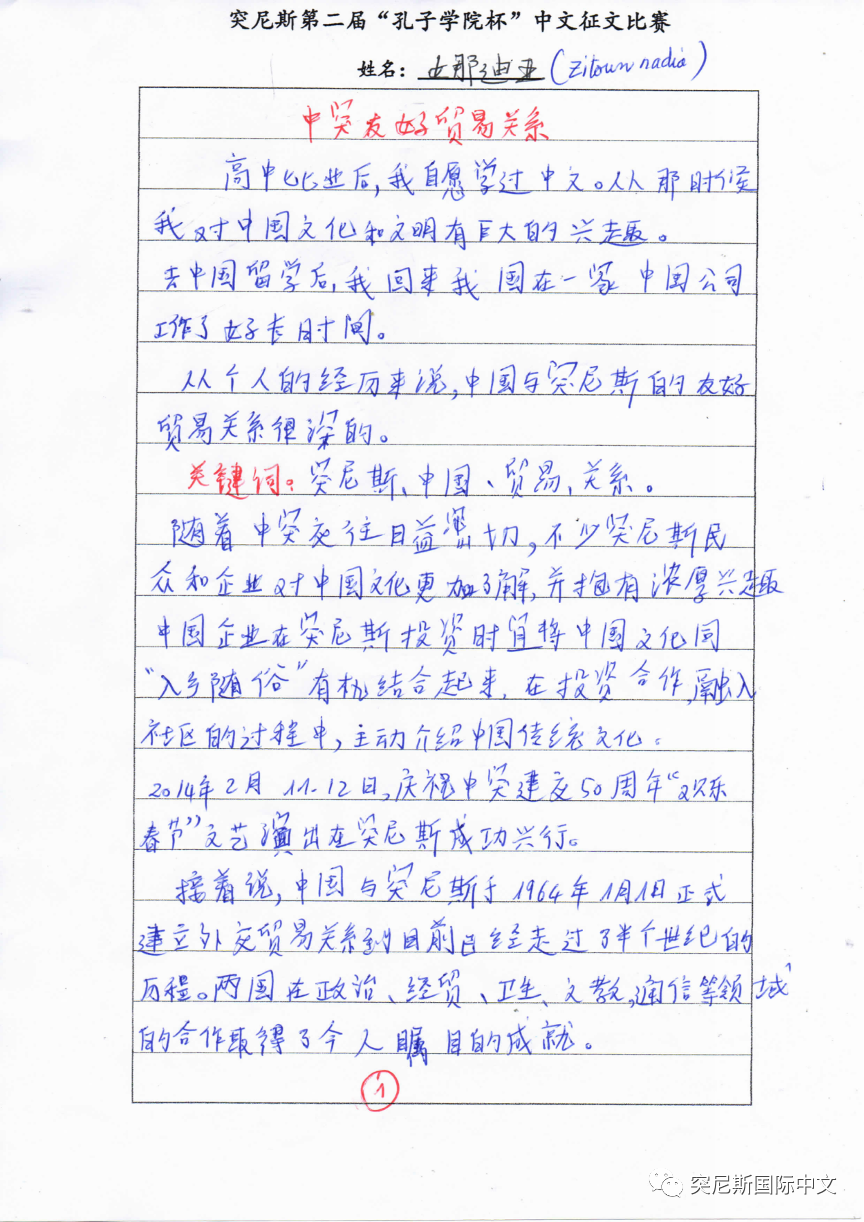 突尼斯第二届“孔子学院杯”中文征文比赛
姓名：女那迪亚(Zitoun nadia)
中突友好贸易关系
高中毕业后,我自愿学过中文。从那时候
我对中国文化和文明有巨大的兴趣。
去中国留学后,我回来我国在一家中国公司
工作了好长时间。
从个人的经历来说,中国与突尼斯的友好
贸易关系很深的。
关键词：突尼斯、中国、贸易、关系。
随着中突交往日益密切,不少突尼斯民
众和企业对中国文化更加了解,并抱有浓厚兴趣
中国企业在突尼斯投资时宜将中国文化同
“入乡随俗”有机结合起来.在投资合作,融入
社区的过程中,主动介绍中国传统文化。
2014年2月11-12日,庆祝中突建交50周年“欢乐
春节”文艺演出在突尼斯成功兴行。
接着说,中国与突尼斯于1964年1月1日正式
建立外交贸易关系到目前已经走过了半个世纪的
历程。两国在政治、经贸、卫生、文教,通信等领域
的合作取得了令人瞩目的成就。
1
突尼斯国际中文